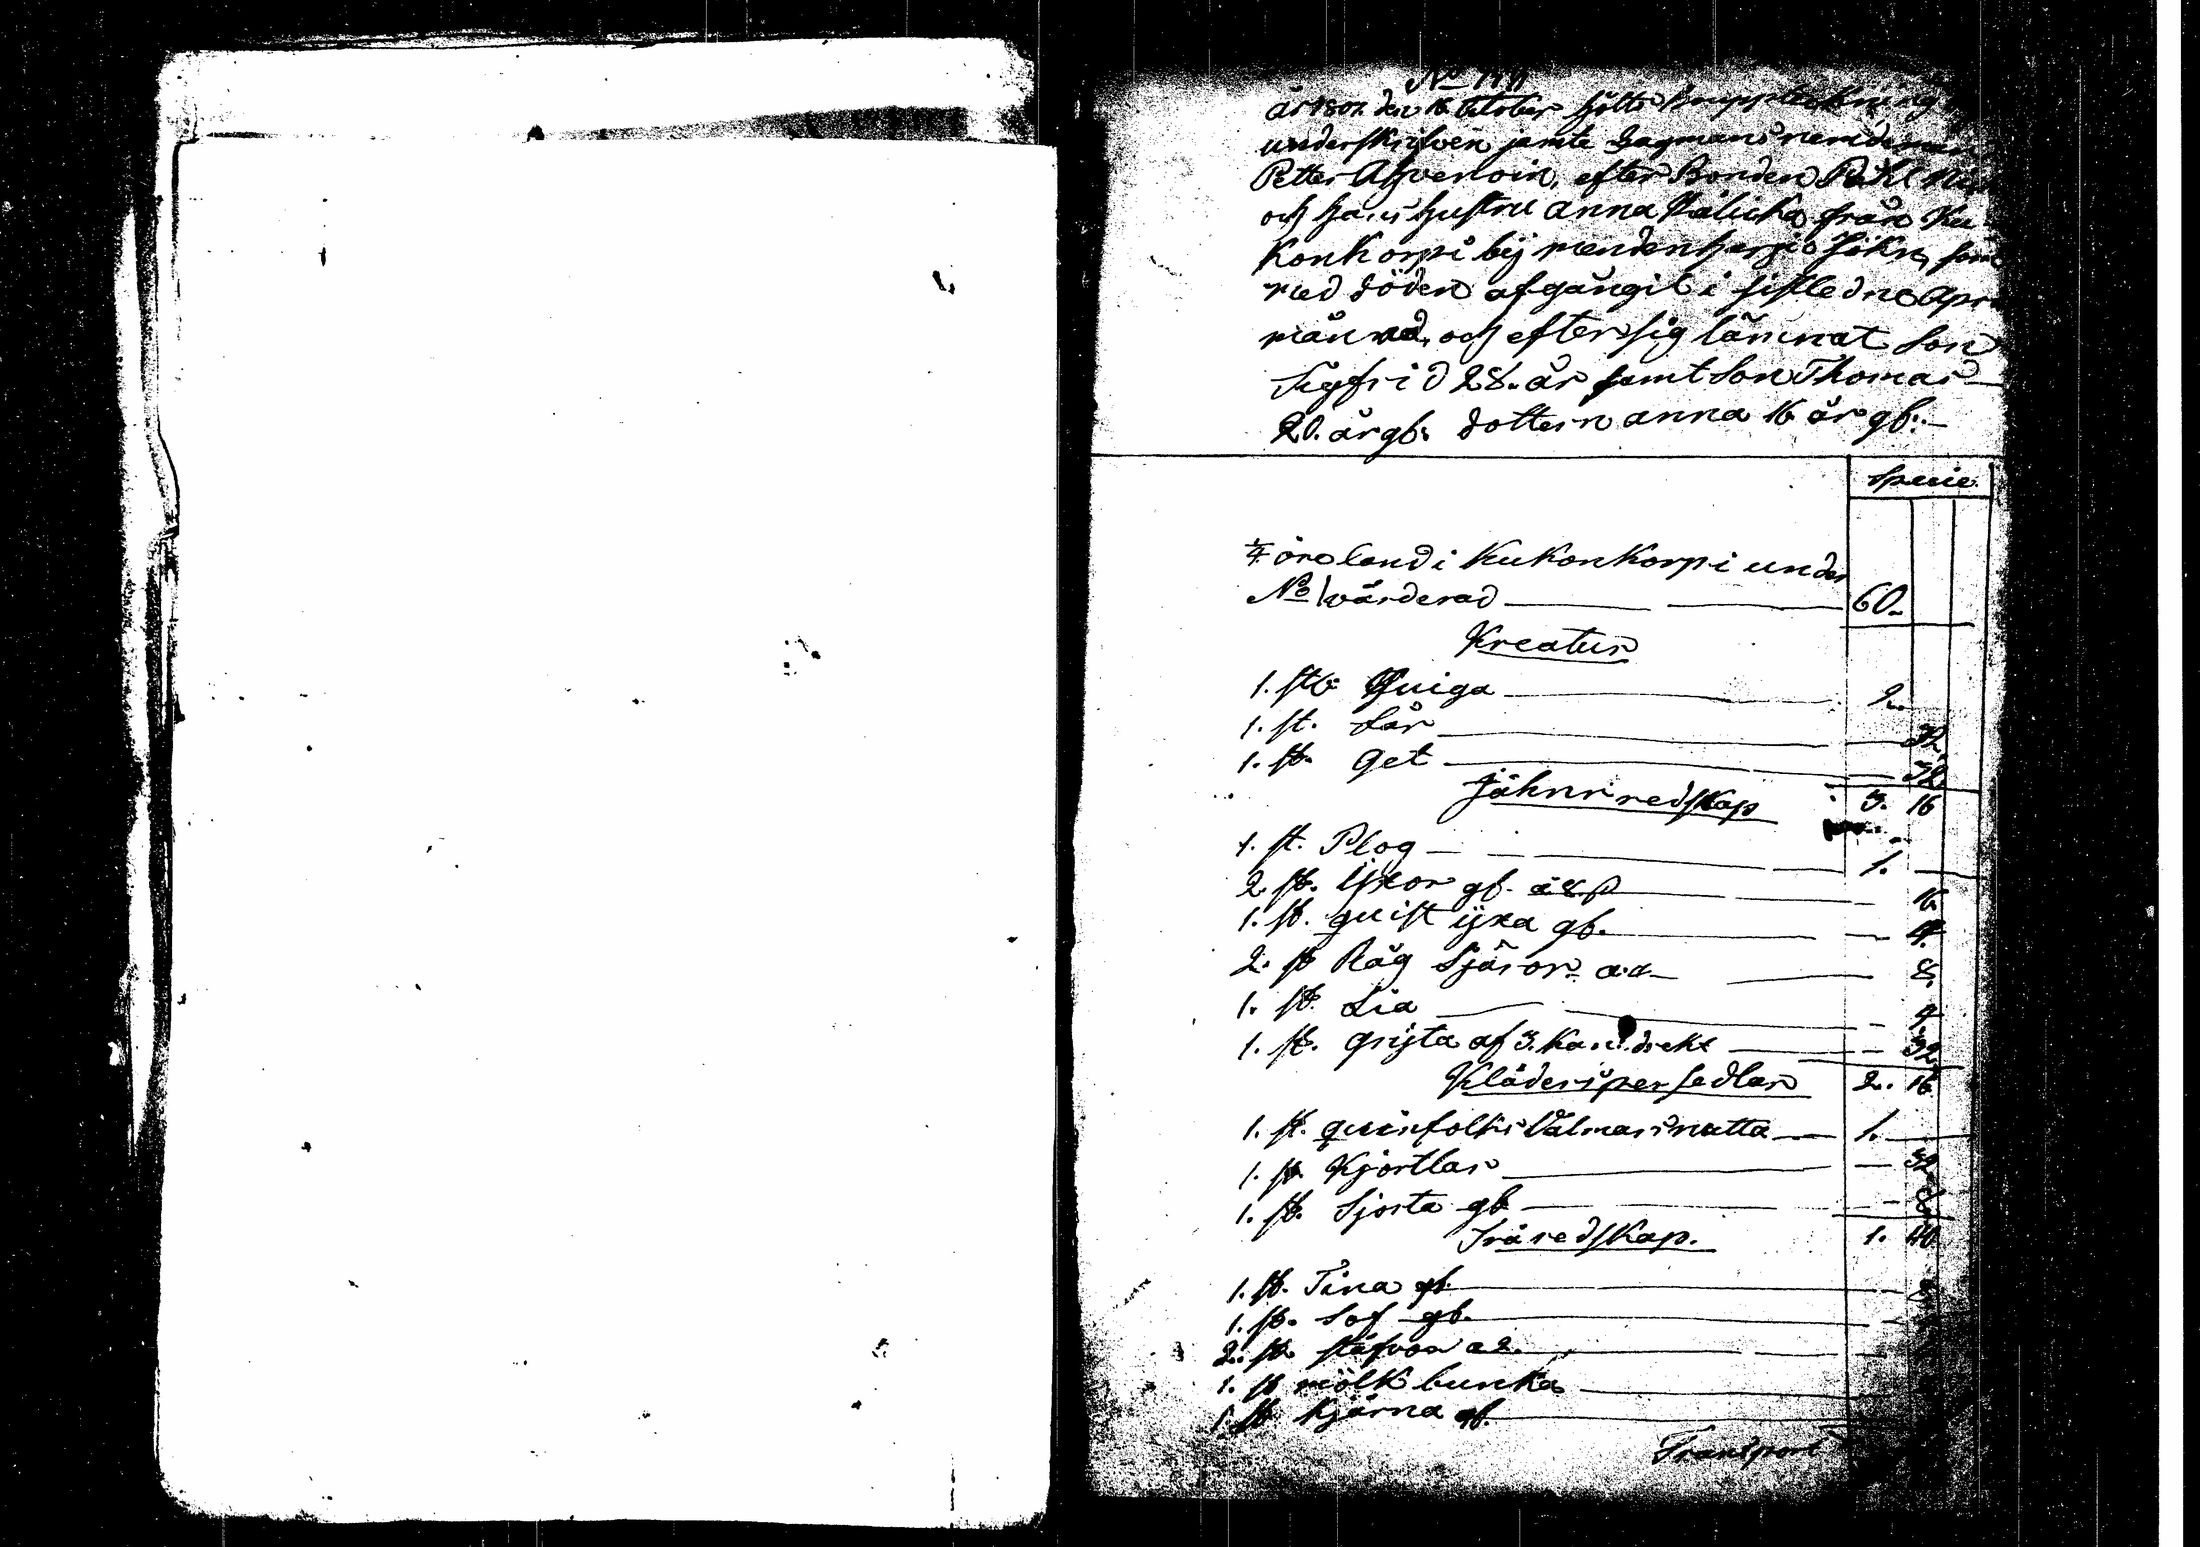 år 1801. den 16 october hjölts
underskrifven jemte Lagmans nemdeman
Petter Ahvenoin, efter Bonden Påhl
och hans hustru anna Pålicka från Ku-
konkorpi bij rendenharju Sökn, som
med döden afgångit i sistledne apr
månad, och efter sig lämnat Son
Sigfrid 28. år samt Son Thomas
20. år gb: dottern anna 16 år gb:-
Specie
1/4 öresland i Kukonkorpi under
No 1 värderad 60.
Kreatur
1. st: Quiga 2.
1. st. får 32
1. st. Get 32
Jährnredskap 3. 16
1. st. Plog 1.
2. st. ijxor gb. à 8 p 16
1. st. quist ijxa gb. 4.
2. st Råg Skjäror a 4 8
1. st. Lia 4.
1. st. grijta af 3. kan: drekt 32
Klädespersedlar 2. 16
1. st. quinfolks Valmars matta 1.
1. st. Kjortlar 32
1. st. Sjorta gb 8
Träredskap. 1. 40
1. st. Tina gb. 8
1. st. Sof gb.
2. st. stäfvor a 2.
1. st miölk bunka
1. st kjärna gb.
Transport